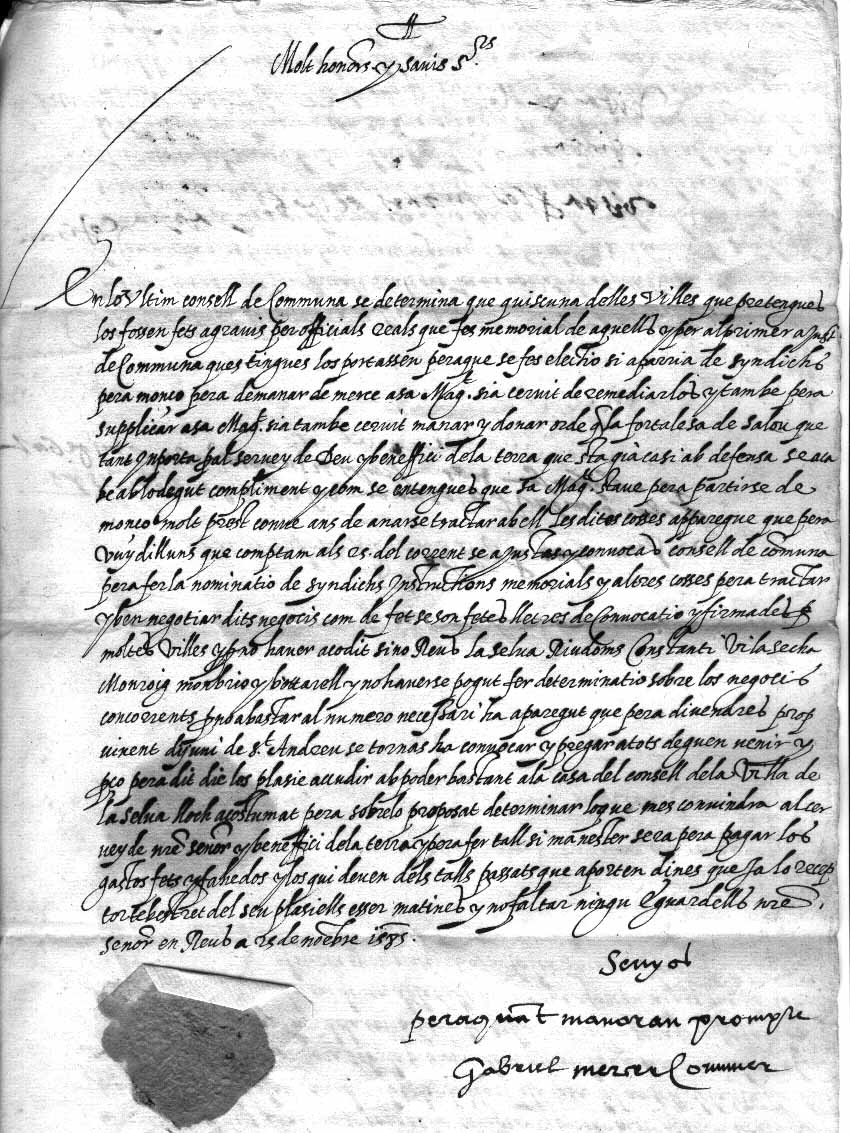 Molt honors y savis s.rs
En lo Ultim consell de Communa se determina que quiscuna de lles Villes que pretengues
los fossen fets agravis per officials reals que fes memorial de aquells y per al primer ajust
de Communa ques tingues los portassen pera que se fes electio si aparria de syndichs
pera monco pera demanar de merce a sa Mag.t sia servit de remediarlos y tambe pera
supplicar a sa Mag.t sia tambe cervit manar y donar orde q la fortalesa de Salou que
tant Inporta pal servey de Deu y beneffici de la terra que sta già casi ab defensa se aca
be ab lo degut compliment y com se entengues que sa Mag.t stave pera partirse de
monco molt prest conve ans de anarse tractar ab ell les dites cosses apparegue que pera
vuy dilluns que comptam als 25 del corrent se ajustas y convocas consell de comuna
pera fer la nominatio de syndichs Instructions memorials y altres cosses pera tractar
y ben negotiar dits negocis com de fet se son fetes lletres de Convocatio y firmades p
moltes Villes y p no haver acodit sino Reus la selva Riudoms Constanti Vilasecha
Monroig monbrio y bottarell y no haverse pogut fer determinatio sobre los negocis
concorrents p no abastar al numero necessari ha aparegut que pera divendres prop
vinent dejuni de s.t Andreu se tornas ha convocar y pregar a tots deguen venir y
p ço pera dit die los plasie accudir ab poder bastant a la casa del consell de la Villa de
la selva lloch acostumat pera sobre lo proposat determinar lo que mes convindra al cer
vey de nre senor y beneffici de la terra y pera fer tall si manester sera pera pagar los
gastos fets y fahedos y los qui deven dels talls passats que aporten dines que ja lo recep
tor te bestret del seu plasiells esser matines y no faltar ningu E guardells nre
senor en Reus a 25 de noēbre 1585.
Senyos
pera quant manaran prompte
Gabriel mercer Commer